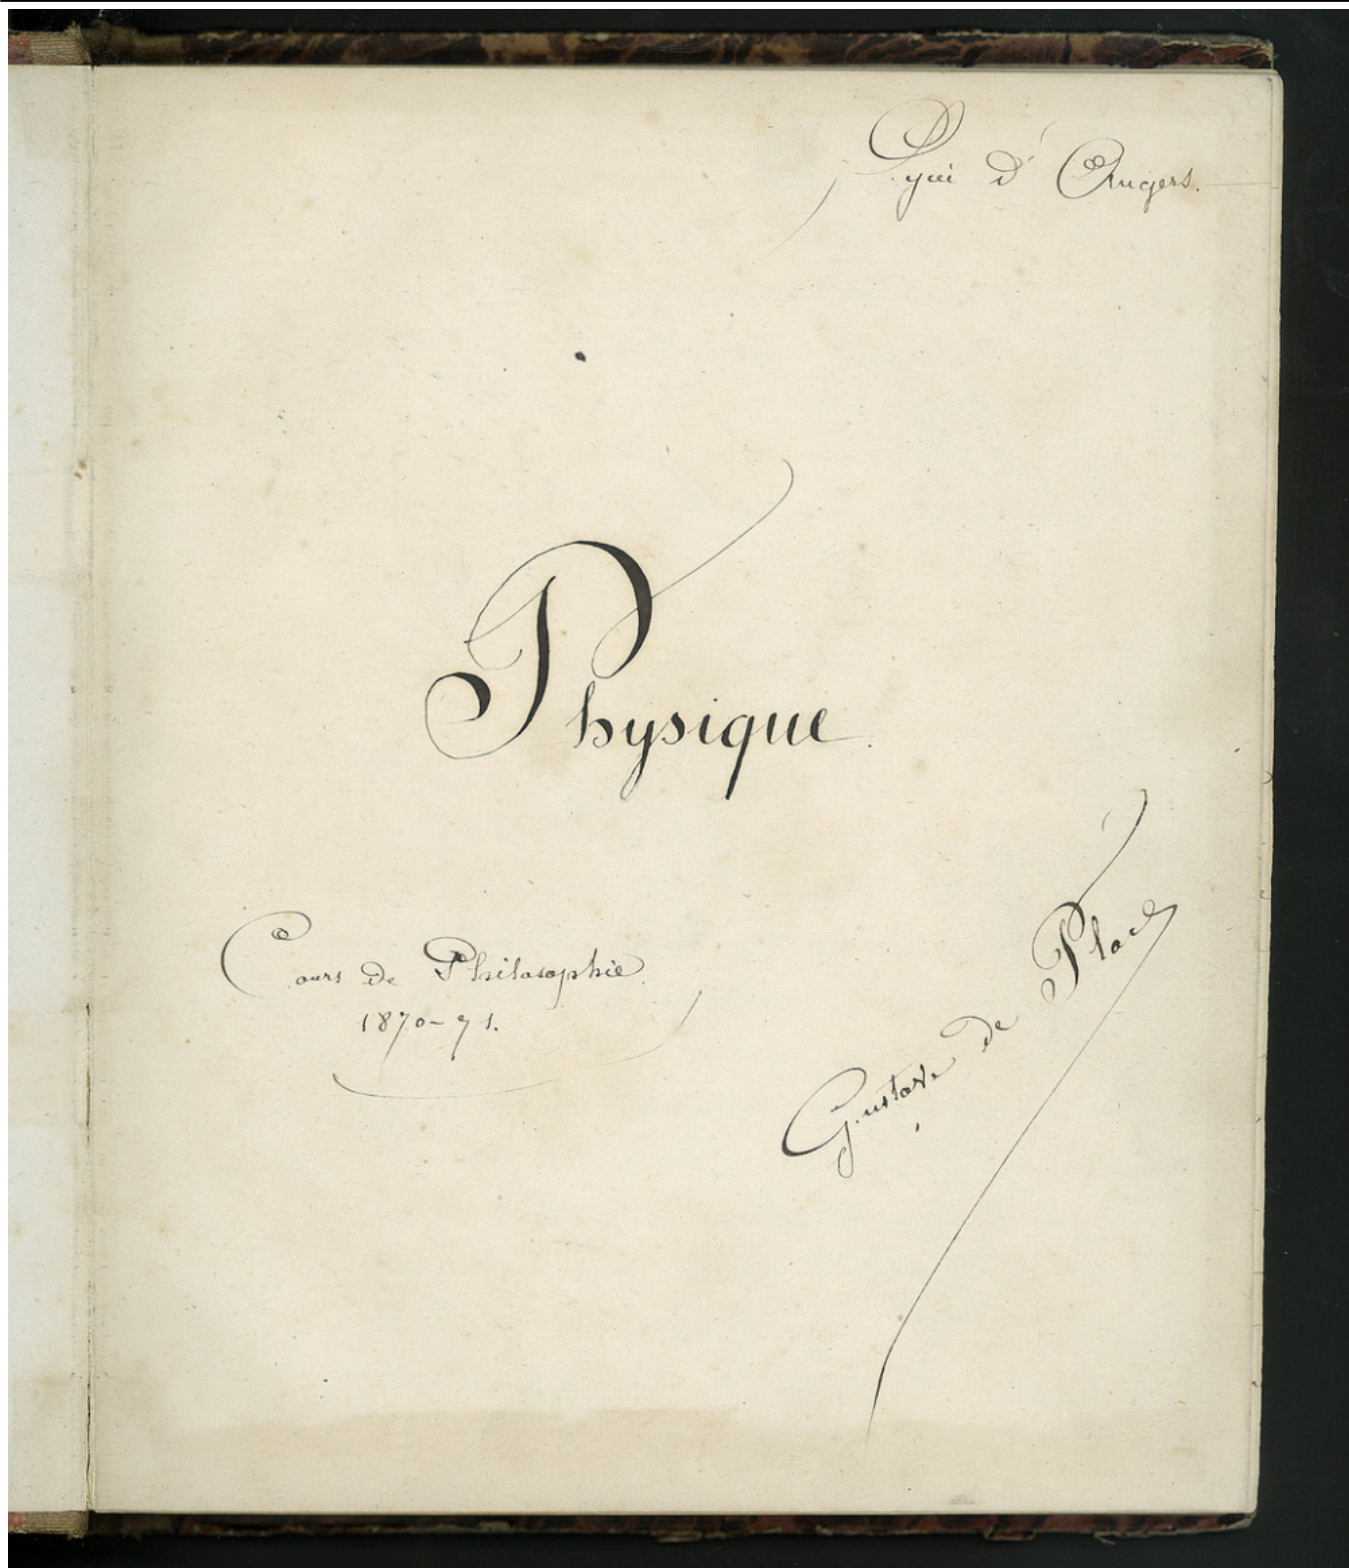 Lycée d'Angers.
Physique.
Cours de Philosophie.
1870-71.
Gustave de Place